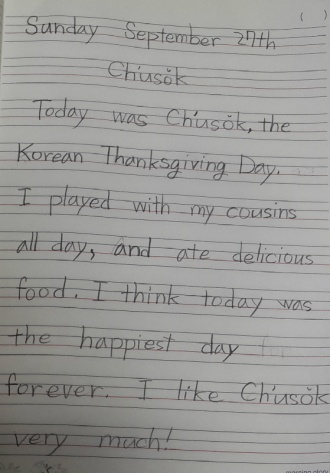 ( )
Sunday September 27th
Ch'usŏk
Today was Ch'usŏk, the
Korean Thanksgiving Day.
I played with my cousins
all day, and ate delicious
food. I think today was
the happiest day
forever. I like Ch'usŏk
very much!
morning glory